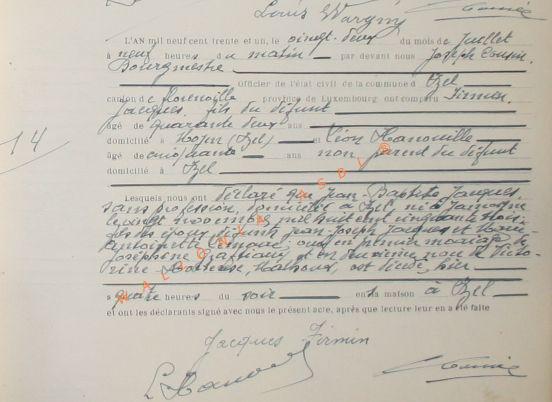 Louis Wargny
L'AN mil neuf cent trente et un, le vingt-deux du mois de Juillet
à neuf heures du matin par devant nous Joseph Cousin,
Bourgmestre
Officier de l'état civil de la commune d'Izel
canton de florenville province de Luxembourg ont comparu Firmin
Jacques, fils du défunt
âgé de quarante deux ans
14
domicilié à Mojn (Izel) et Léon Hanouille
âgé de cinquante ans non parent du défunt
domicilié à Izel
Lesquels nous ont déclaré que Jean-Baptiste Jacques,
sans profession, domicilié à Izel, né à Jamoigne
le vingt novembre mil huit cent cinquante trois
fils des époux défunts Jean-Joseph Jacques et Marie
Antoinette ; en premier mariage de
Joséphine et en deuxième noce de Victo-
rine Mathoux, est décédé, hier
à quatre heures du soir en la maison à Izel
et ont les déclarants signé avec nous le présent acte, après que lecture leur en a été faite
WALBURNIA ISDLB
Jacques Firmin
L Hanouille